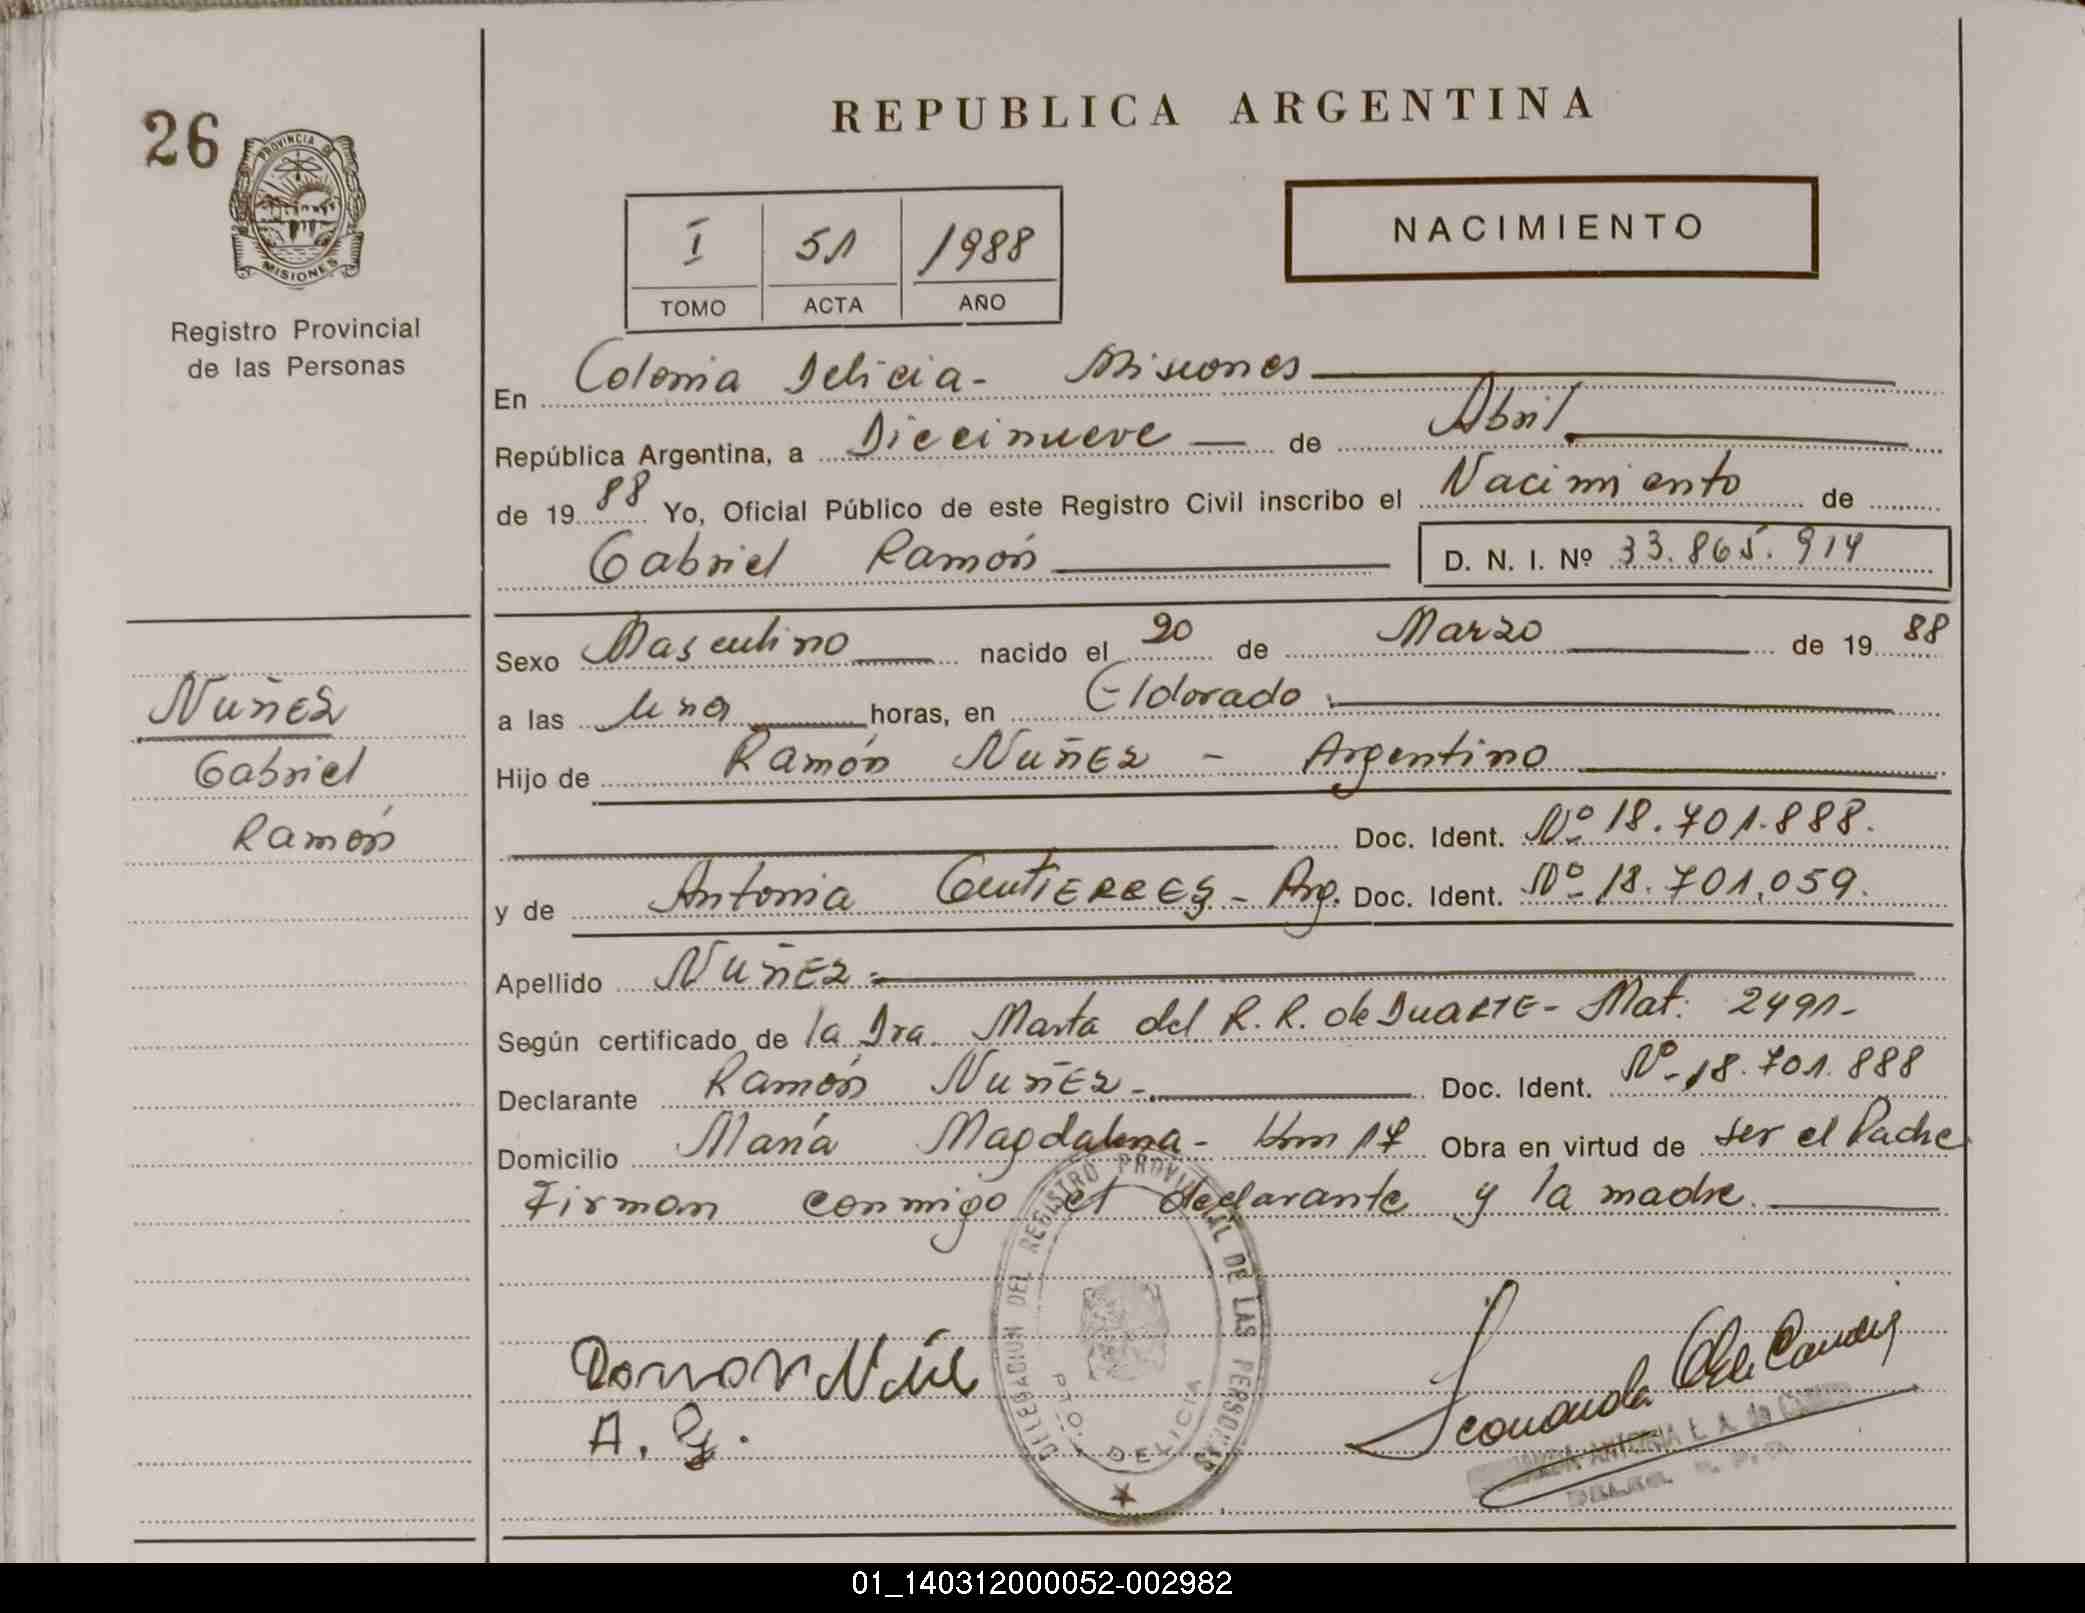 26
PROVINCIA DE
MISIONES
Registro Provincial
de las Personas
REPUBLICA ARGENTINA
NACIMIENTO
I 51 1988
TOMO ACTA AÑO
En Colonia Delicia - Misiones
República Argentina, a Diecinueve de Abril
de 19 88 Yo, Oficial Público de este Registro Civil inscribo el Nacimiento de
Gabriel Ramón D. N. I. Nº 33.865.914
Sexo Masculino nacido el 20 de Marzo de 19 88
a las Una horas, en Eldorado
Hijo de Ramón Nuñez - Argentino
Doc. Ident. Nº 18.701.888.
y de Antonia GutiERRES - Arg. Doc. Ident. Nº 18.701.059.
Apellido NuñEz
Según certificado de la Dra. Marta del R. R. de DuARTE - Mat: 2491-
Declarante Ramón NuñEz - Doc. Ident. Nº 18.701.888
Domicilio María Magdalena - Km 17 Obra en virtud de ser el Padre
Firman conmigo el declarante y la madre.
Nuñez
Gabriel
Ramón
DELEGACION DEL REGISTRO PROVINCIAL DE LAS PERSONAS
PTO. DELICIA
A. G.
ANTONIA E. A. de
01_140312000052-002982